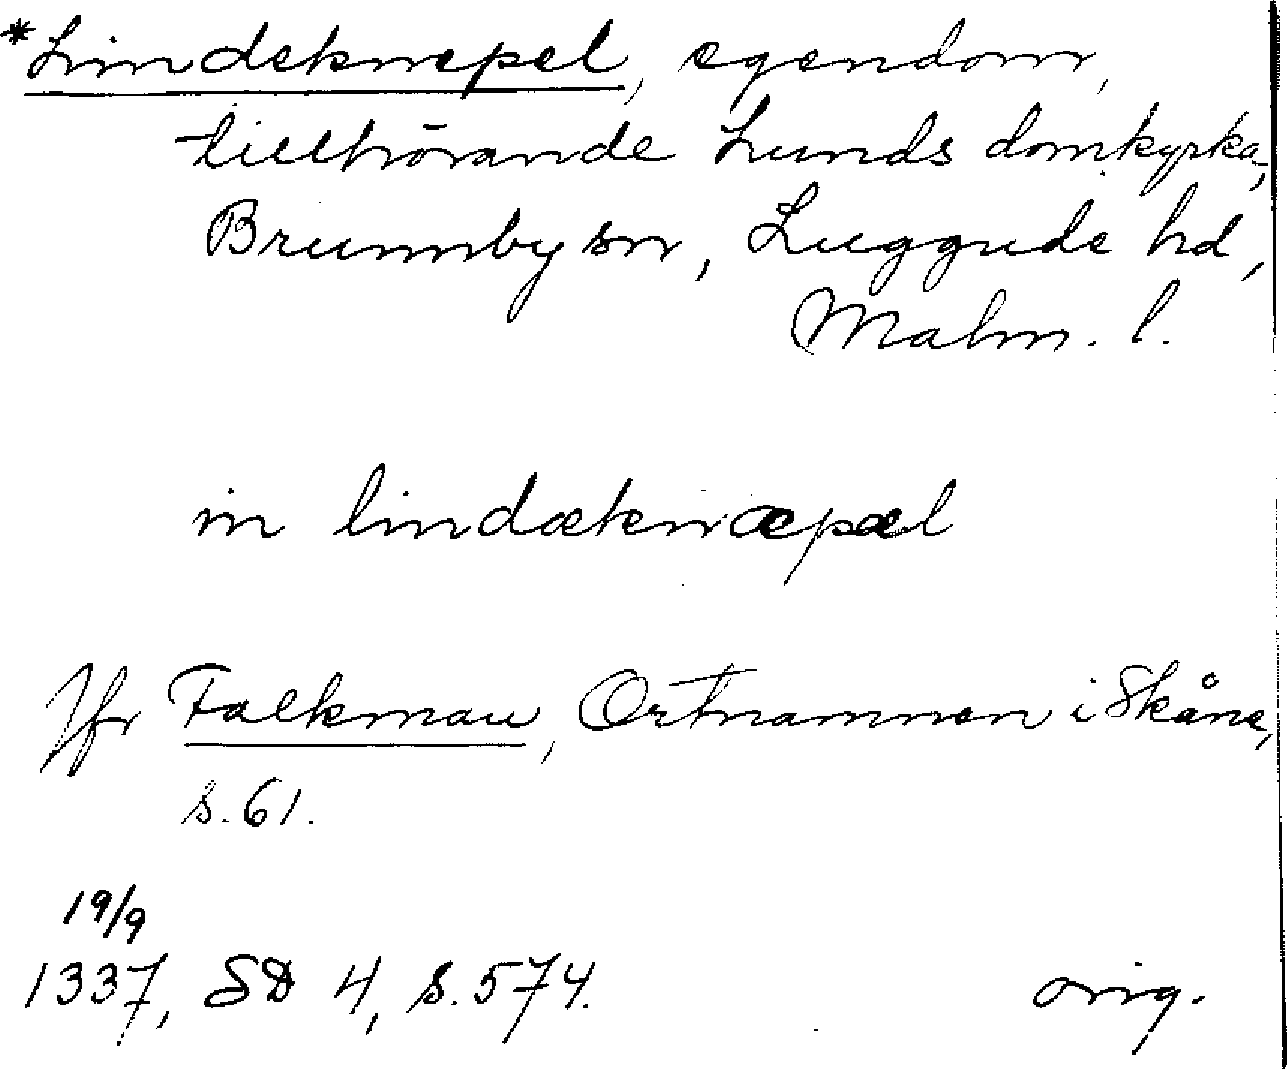 *Lindeknepel, egendom,
tillhörande Lunds domkyrka,
Brunnby sn, Luggude hd,
Malm. l.
in lindæknæpæl
Jfr Falkman, Ortnamnen i Skåne,
s. 61.
19/9
1337, SD 4, s. 574. orig.